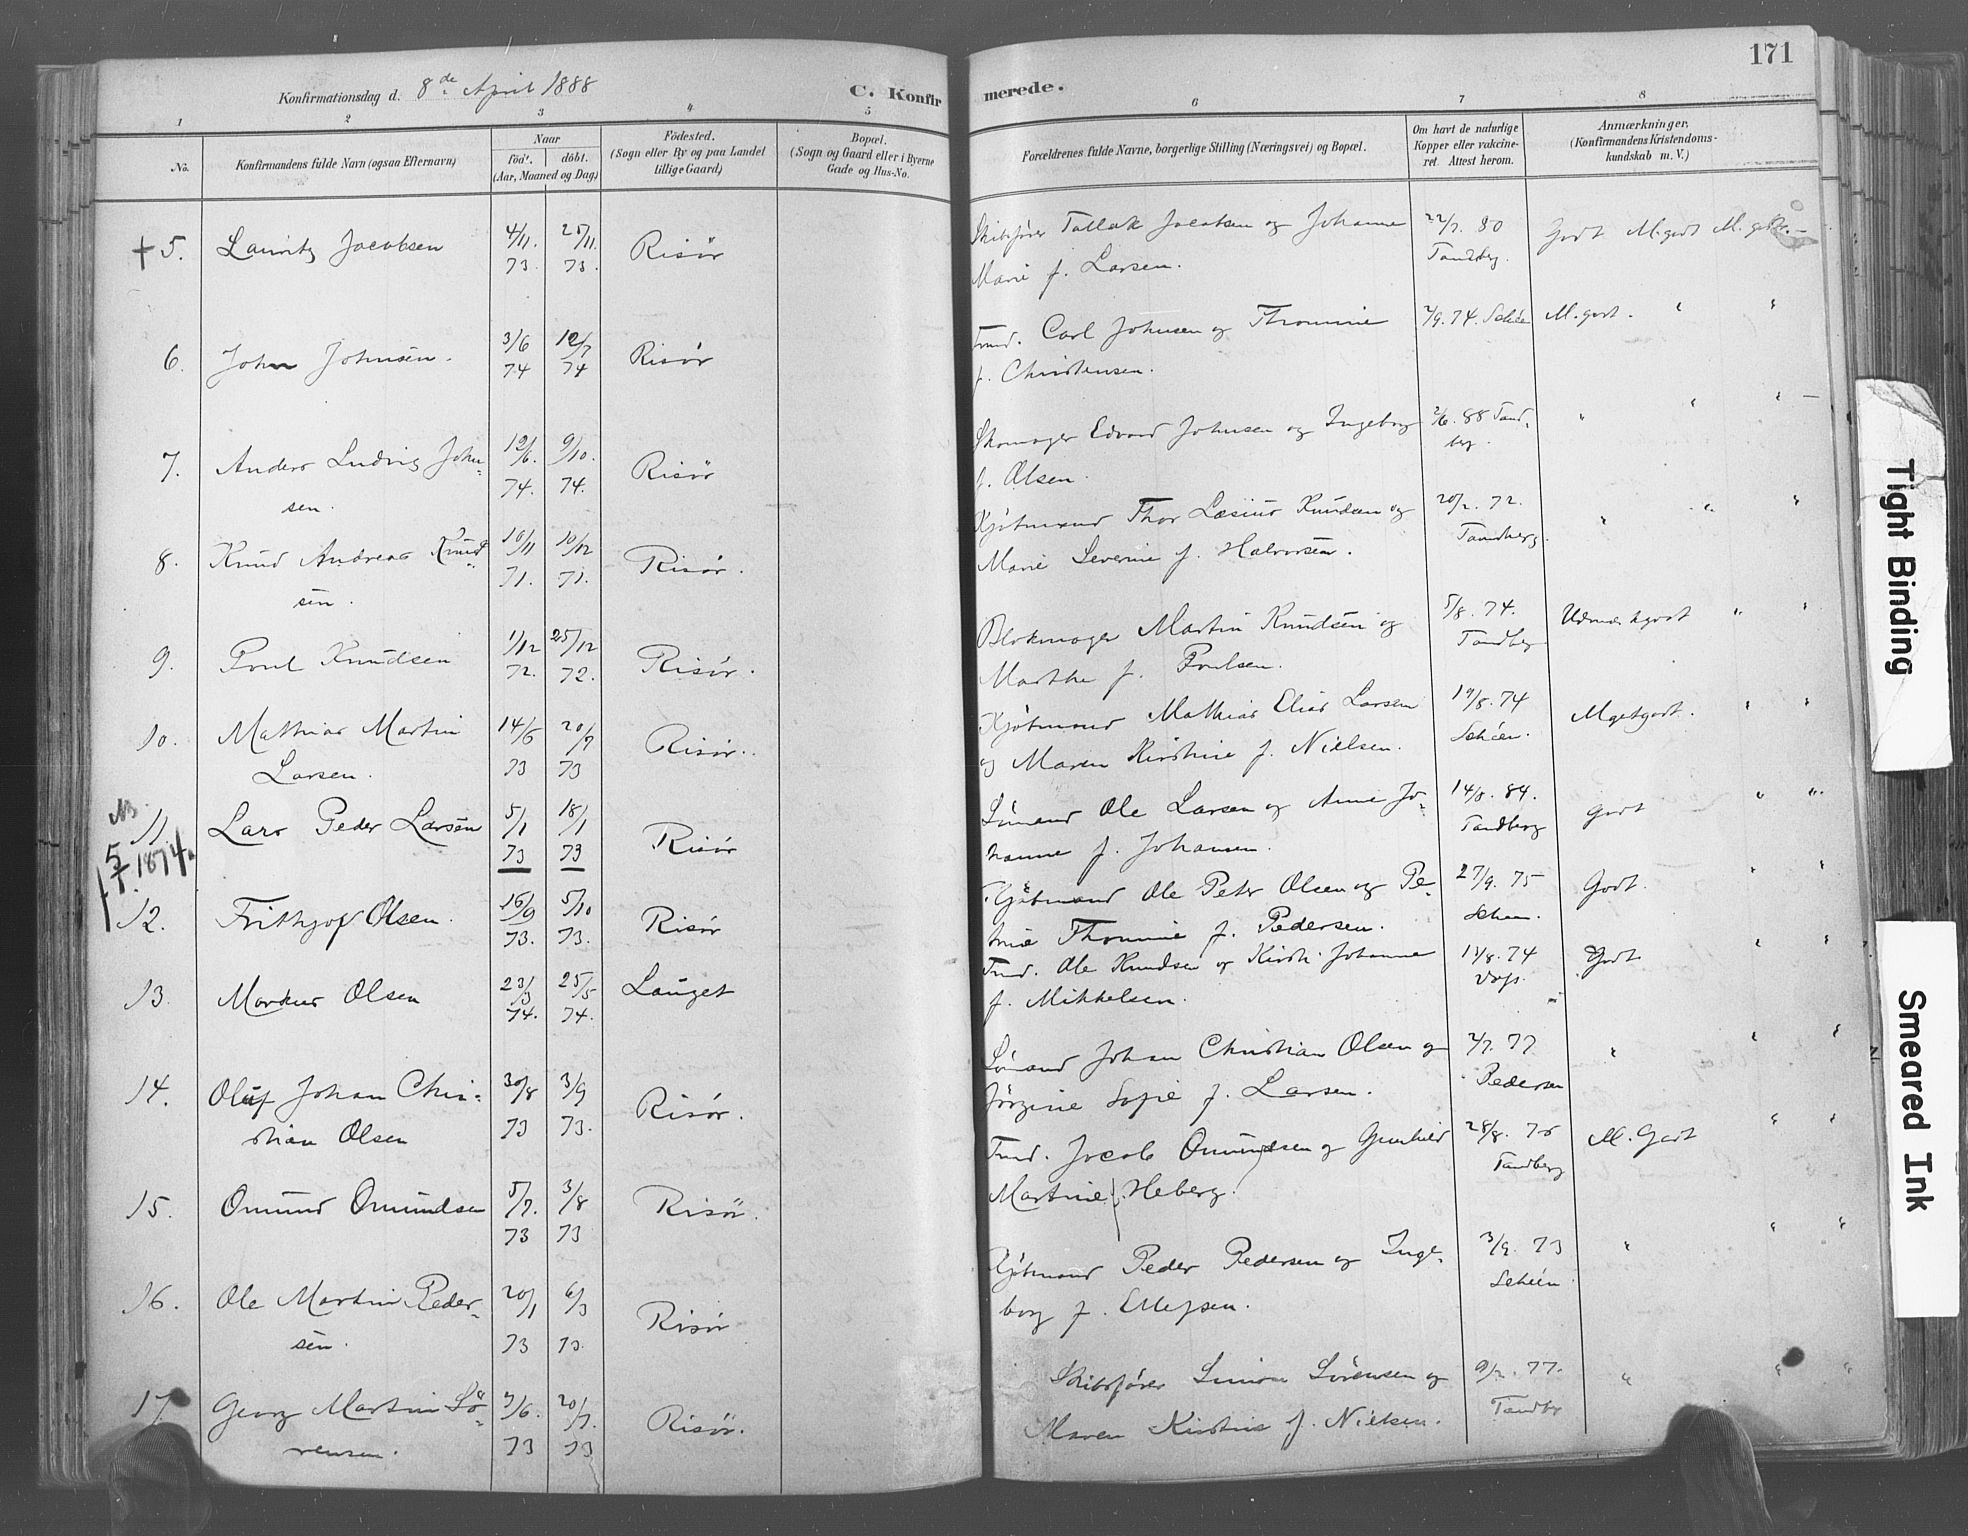 171
Konfirmationsdag d. 8de April 1888
C. Konfir merede.
1 2 3 4 5 6 7 8
No.
Konfirmandens fulde Navn (ogsaa Efternavn)
Naar
fød't. døbt.
(Aar, Maaned og Dag)
Fødested.
(Sogn eller By og paa Landet
tillige Gaard)
Bopæl.
(Sogn og Gaard eller i Byerne
Gade og Hus-No.
Forældrenes fulde Navne, borgerlige Stilling (Næringsvei) og Bopæl.
Om havt de naturlige
Kopper eller vakcine-
ret. Attest herom.
Anmærkninger,
(Konfirmandens Kristendoms-
kundskab m. V.)
+ 5. Lauritz Jacobsen 4/11. 73. 25/11. 73. Risør Skibsfører Tallak Jacobsen og Johanne 22/7. 80 Godt M.godt
Marie f. Larsen. Tandberg.
6. John Johnsen. 3/6 74 12/7 74 Risør Tmd. Carl Johnsen og Thomine 74. Schéen M.godt. " "
f. Christensen.
7. Anders Ludvig John- 12/6. 74. 9/10. 74. Risør Skomager Edvard Johnsen og Ingeborg 2/6. 88 Tand- " " "
sen. f. Olsen. berg.
8. Knud Andreas Knud- 10/11 71. 10/12 71. Risør. Kjøbmand Thor Knudsen og 20/2. 72. " " "
sen. Marie Severine f. Halvorsen. Tandberg.
9. Poul Knudsen 1/12 72. 25/12 72. Risør. Blokmager Martin Knudsen og 5/8. 74. Udmærkgodt " "
Marthe f. Poulsen. Tandberg
10. Mathias Martin 14/5 73 20/7 73 Risør. Kjøbmand Mathias Elias Larsen 19/8. 74 Mgetgodt. " "
Larsen. og Maren Kirstine f. Nielsen. Schéen.
11. Lars Peder Larsen 5/1 73 18/1 73 Risør Sømand Ole Larsen og Anne Jo- 14/8. 84. godt " "
1874 hanne f. Johansen. Tandberg
12. Frithjof Olsen. 16/9 73. 5/10 73. Risør Kjøbmand Ole Peter Olsen og Pe- 27/9. 75 Godt. " "
trine Thomine f. Pedersen. Scheen.
13. Markus Olsen 23/3 74. 25/5 74. Lauget Tmd. Ole Knudsen og Kirsti Johanne 74 Godt " "
f. Mikkelsen.
14. Oluf Johan Chris- 30/8 73 3/9 73. Risør. Sømand Johan Christian Olsen og 2/7. 77 " " "
tian Olsen Jørgine Sofie f. Larsen. Pedersen
15. Omund Omundsen 5/7. 73 3/8 73 Risør. Tmd. Jacob Omundsen og Gunhild 28/8. 75 M. Godt " "
Martine f. Heberg. Tandberg
16. Ole Martin Peder- 20/1 73 6/3 73. Risør Kjøbmand Peder Pedersen og Inge- 3/9. 73 " " "
sen. borg f. Ellefsen. Schéen.
17 Georg Martin Sø- 73 20/7. 73 Risør. Skibsfører Simon Sørensen og 9/2. 77. " " "
rensen. Maren Kirstine f. Nielsen. Tandbg
Tight Binding
Smeared Ink